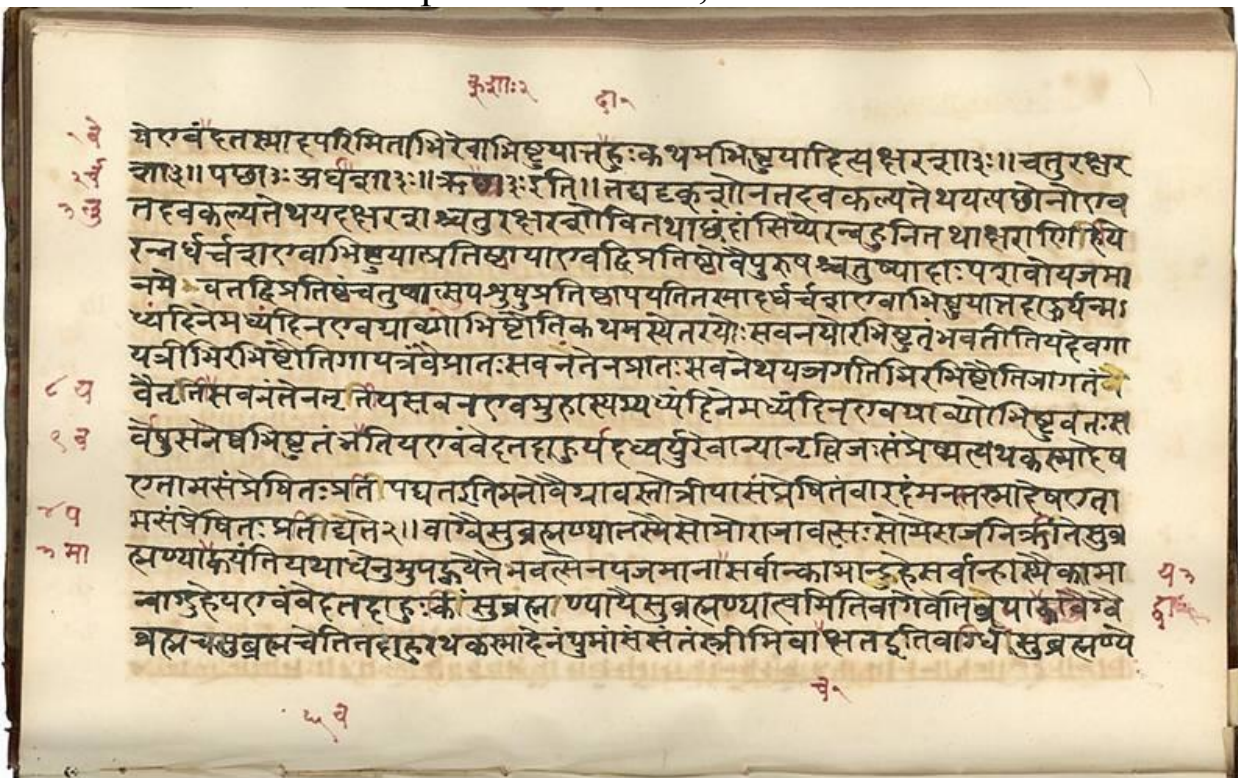 कुशाः२
दा१
येएवंवेदतस्मादपरिमिताभिरेवाभिष्टुयात्तदाहुःकथमभिष्टुयादित्यक्षरशा३ः॥चतुरक्षर
शा३॥पछा३ःअर्धर्चशा३ः॥ऋक्शा३ःइति॥तद्यदृक्शोनतदवकल्पतेथयत्पछोनोएव
तदवकल्पतेथयदक्षरशश्चतुरक्षरशोवितथाछंदांसिलुप्येरन्बहूनितथाक्षराणिहीये
रन्नर्धर्चशएवाभिष्टुयात्प्रतिष्ठायाएवद्विप्रतिष्ठोवैपुरुषश्चतुष्पादाःपशवोयजमा
नमेवतद्विप्रतिष्ठंचतुष्पात्सुपशुषुप्रतिष्ठापयतितस्मादर्धर्चशएवाभिष्टुयात्तदाहुर्यन्म
ध्यंदिनेमध्यंदिनएवग्राव्णोभिष्टौतिकथमस्येतरयोःसवनयोरभिष्टुतंभवतीतियदेवगा
यत्रीभिरभिष्टौतिगायत्रंवैप्रातःसवनंतेनप्रातःसवनेथयज्जगतीभिरभिष्टौतिजागतं
वैतृतीयसवनंतेनतृतीयसवनएवमुहास्यमध्यंदिनेमध्यंदिनएवग्राव्णोभिष्टुवतःस
र्वेषुसवनेष्वभिष्टुतंभवतियएवंवेदतदाहुर्यदध्वर्युरेवान्यानृत्विजःसंप्रेष्यत्यथकस्मादेष
एतामसंप्रेषितःप्रतिपद्यतइतिमनोवैग्रावस्तोत्रीयासंप्रेषितंवाइदंमनस्तस्मादेषएता
मसंप्रेषितःप्रतिपद्यते२॥वाग्वैसुब्रह्मण्यातस्यैसोमोराजावत्सःसोमेराजनिक्रीतेसुब्र
ह्मण्यामाह्वयंतियथाधेनुमुपह्वयेत्तेनवत्सेनयजमानायसर्वान्कामान्दुहेसर्वान्हास्मैकामा
न्वाग्दुहेयएवंवेदतदाहुःकिंसुब्रह्मण्यायैसुब्रह्मण्यात्वमितिवागेवेतिब्रूयाद्वाग्वै
ब्रह्मचसुब्रह्मचेतितदाहुरथकस्मादेनंपुमांसंसंतंस्त्रीमिवाचक्षतइतिवाग्घिसुब्रह्मण्ये
८ य
९ व
मा
चे१